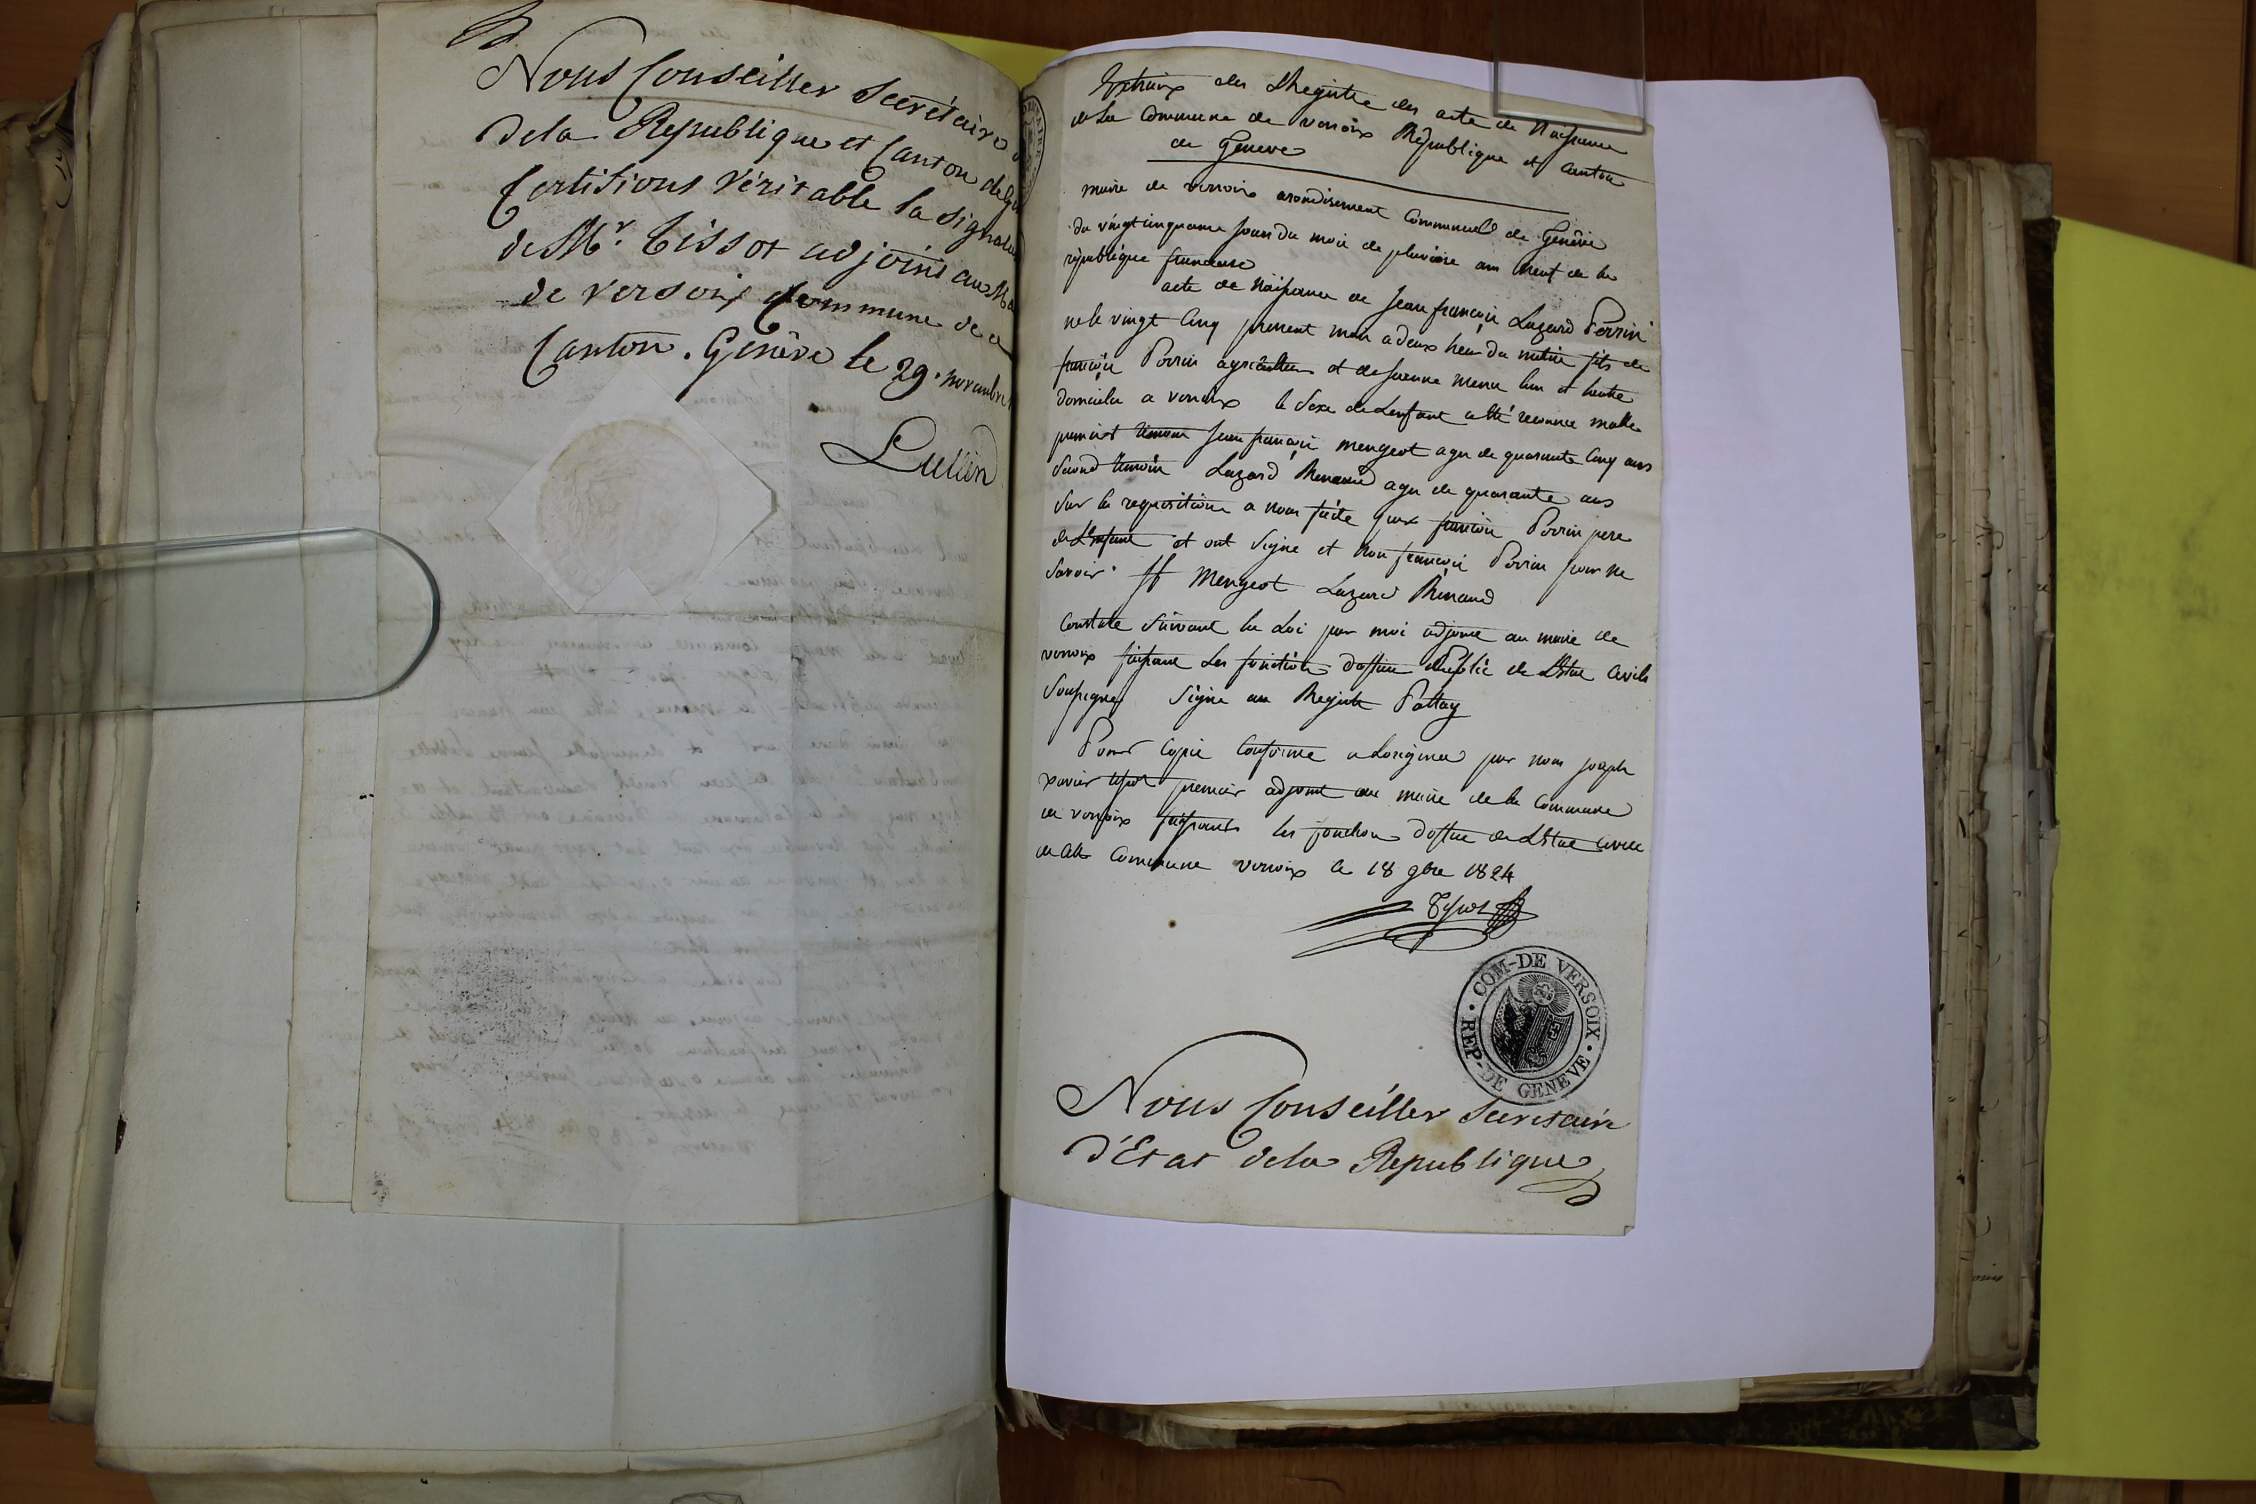 Nous Conseiller Secrétaire
de la Republique et Canton de
Certifions véritable la signatu
de Mr. Tissot adjoint au Ma
de Versoix Commune de ce
Canton. Genève le 29. novembre
Lullin
Extraix des Registre des acte de Naissance
de La Commune de versoix Republique et Canton
de Geneve
mairie de versoix arondisement Communal de Genêve
du vingt cinquieme jour du mois de pluviose an neuf de la
république francaise
acte de Naissance de Jean françois Lazard Perrin
ne le vingt Cinq present mois a deux heur du matin fils de
françois Perrin agriculteur et de Jeanne
domicilie a versoix le Sexe de Lenfant a été reconnu malle
premier temoin Jean françois Mengeot agee de quarante Cinq ans
Second temoin Lazard Renaud agee de quarante ans
Sur la requisition a nous faite par françois Perrin pere
de Lenfant et ont Signe et non françois Perrin pour ne
Savoir. Mengeot Lazard Renaud
Constate Suivant la Loi par moi adjoint au maire de
versoix faisant Les fonction dofficier Public de Létat Civile
Soussigner Signe au Registre Pattay
Pour Copie Conforme a Loriginal par nous joseph
xavier tissot premier adjoint au maire de la Commune
de versoix faisant les fonction dofficier de Létat Civile
de cette Commune versoix le 18 9bre 1824
Tissot
COM-DE VERSOIX.
REP-DE GENEVE.
Nous Conseiller Secretaire
d'Etat de la Republique